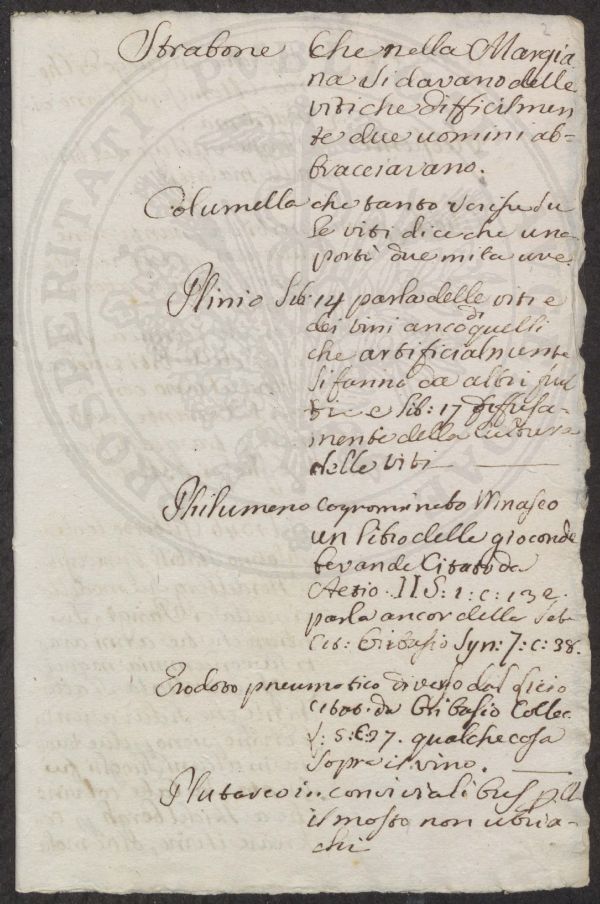 2
Strabone Che nella Margia
na si davano delle
viti che difficilmen
te due uomini ab-
bracciavano.
Columella che tanto scrisse su
le viti dice che una
portò due mila uve.
Plinio Lib: 14 parla delle viti e
dei vini anco di quelli
che artificialmente
si fanno da altri fru
e Lib: 17 diffusa-
mente della cultura
delle viti
Philumeno cognominato
un libro delle gioconde
bevande Citato da
Aetio. II S: 1: c: 13 e
parla ancor delle
Cit: Oribasio Syn: 7: c: 38.
Erodoto pneumatico diverso dal
citato da Oribasio Collec
5: C 27. qualche cosa
sopra il vino.
Plutarco in convivialibus
il mosto non ubria-
chi
PROSPERITATI PUBLICAE